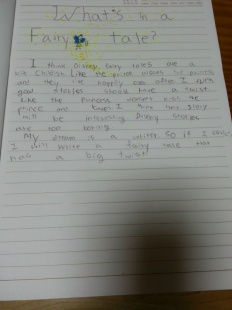 What's in a
Fairy tale?
I think Disney fairy tales are a
bit Childish. Like the prince
and they live happily ever after. I think
good stories should have a twist.
Like the Princess kiss the
prince and I think that story
will be interesting. Disney stories
are too boring.
My dream is a writer. So if I
I will write a fairy tale that
has a big twist!